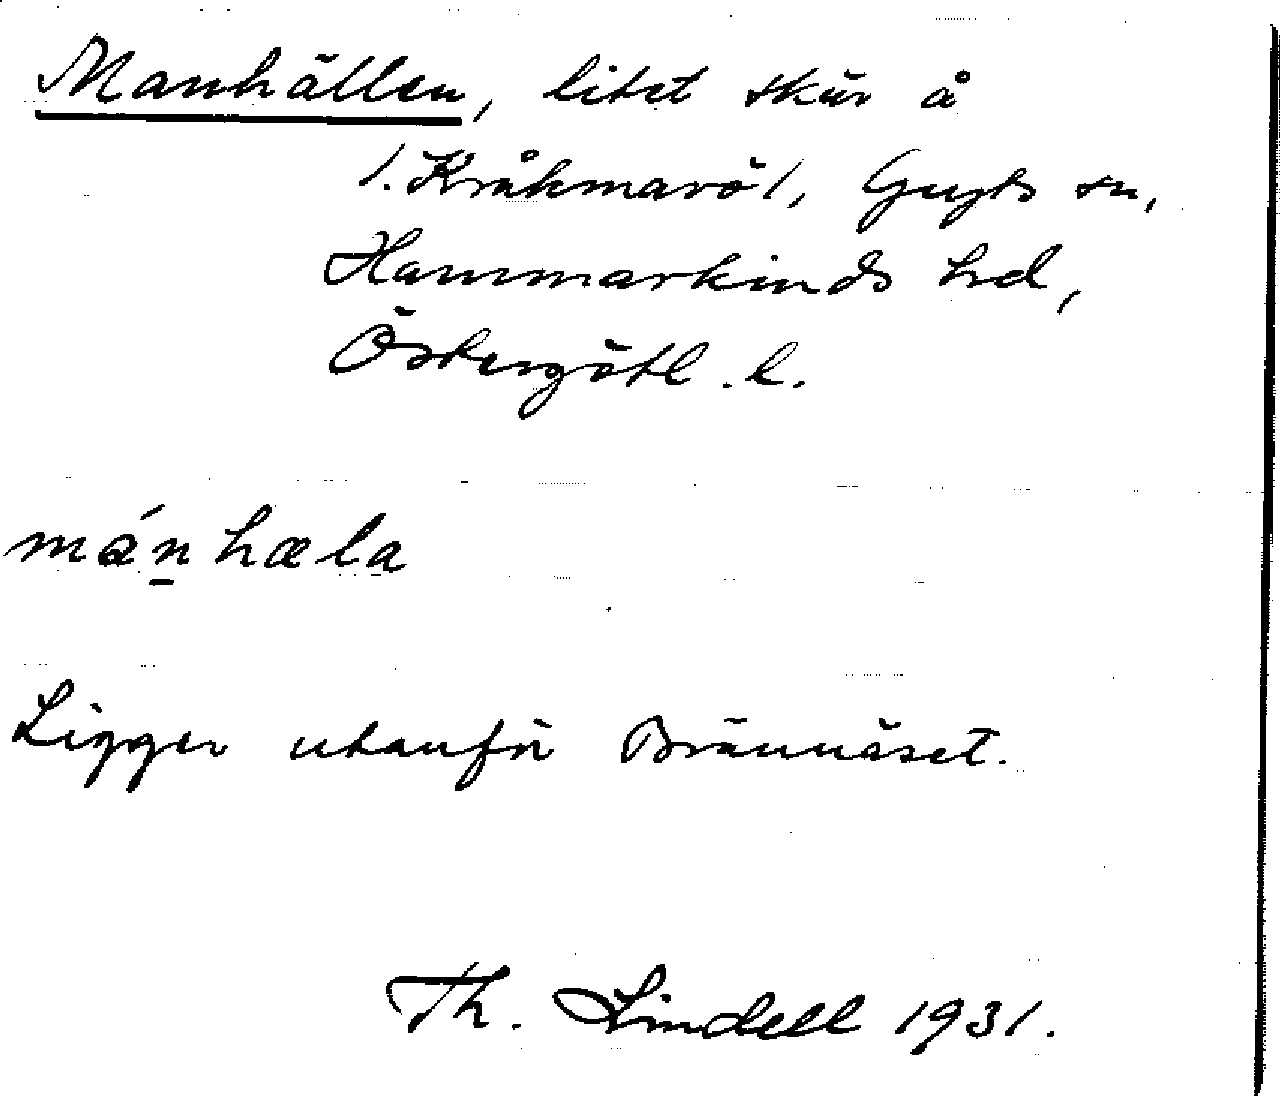 Manhällen, litet skär å
1. Kråkmarö 1, Gryts sn,
Hammarkinds hd,
Östergötl. l.
mánhæla
Ligger utanför Brännäset.
Th. Lindell 1931.